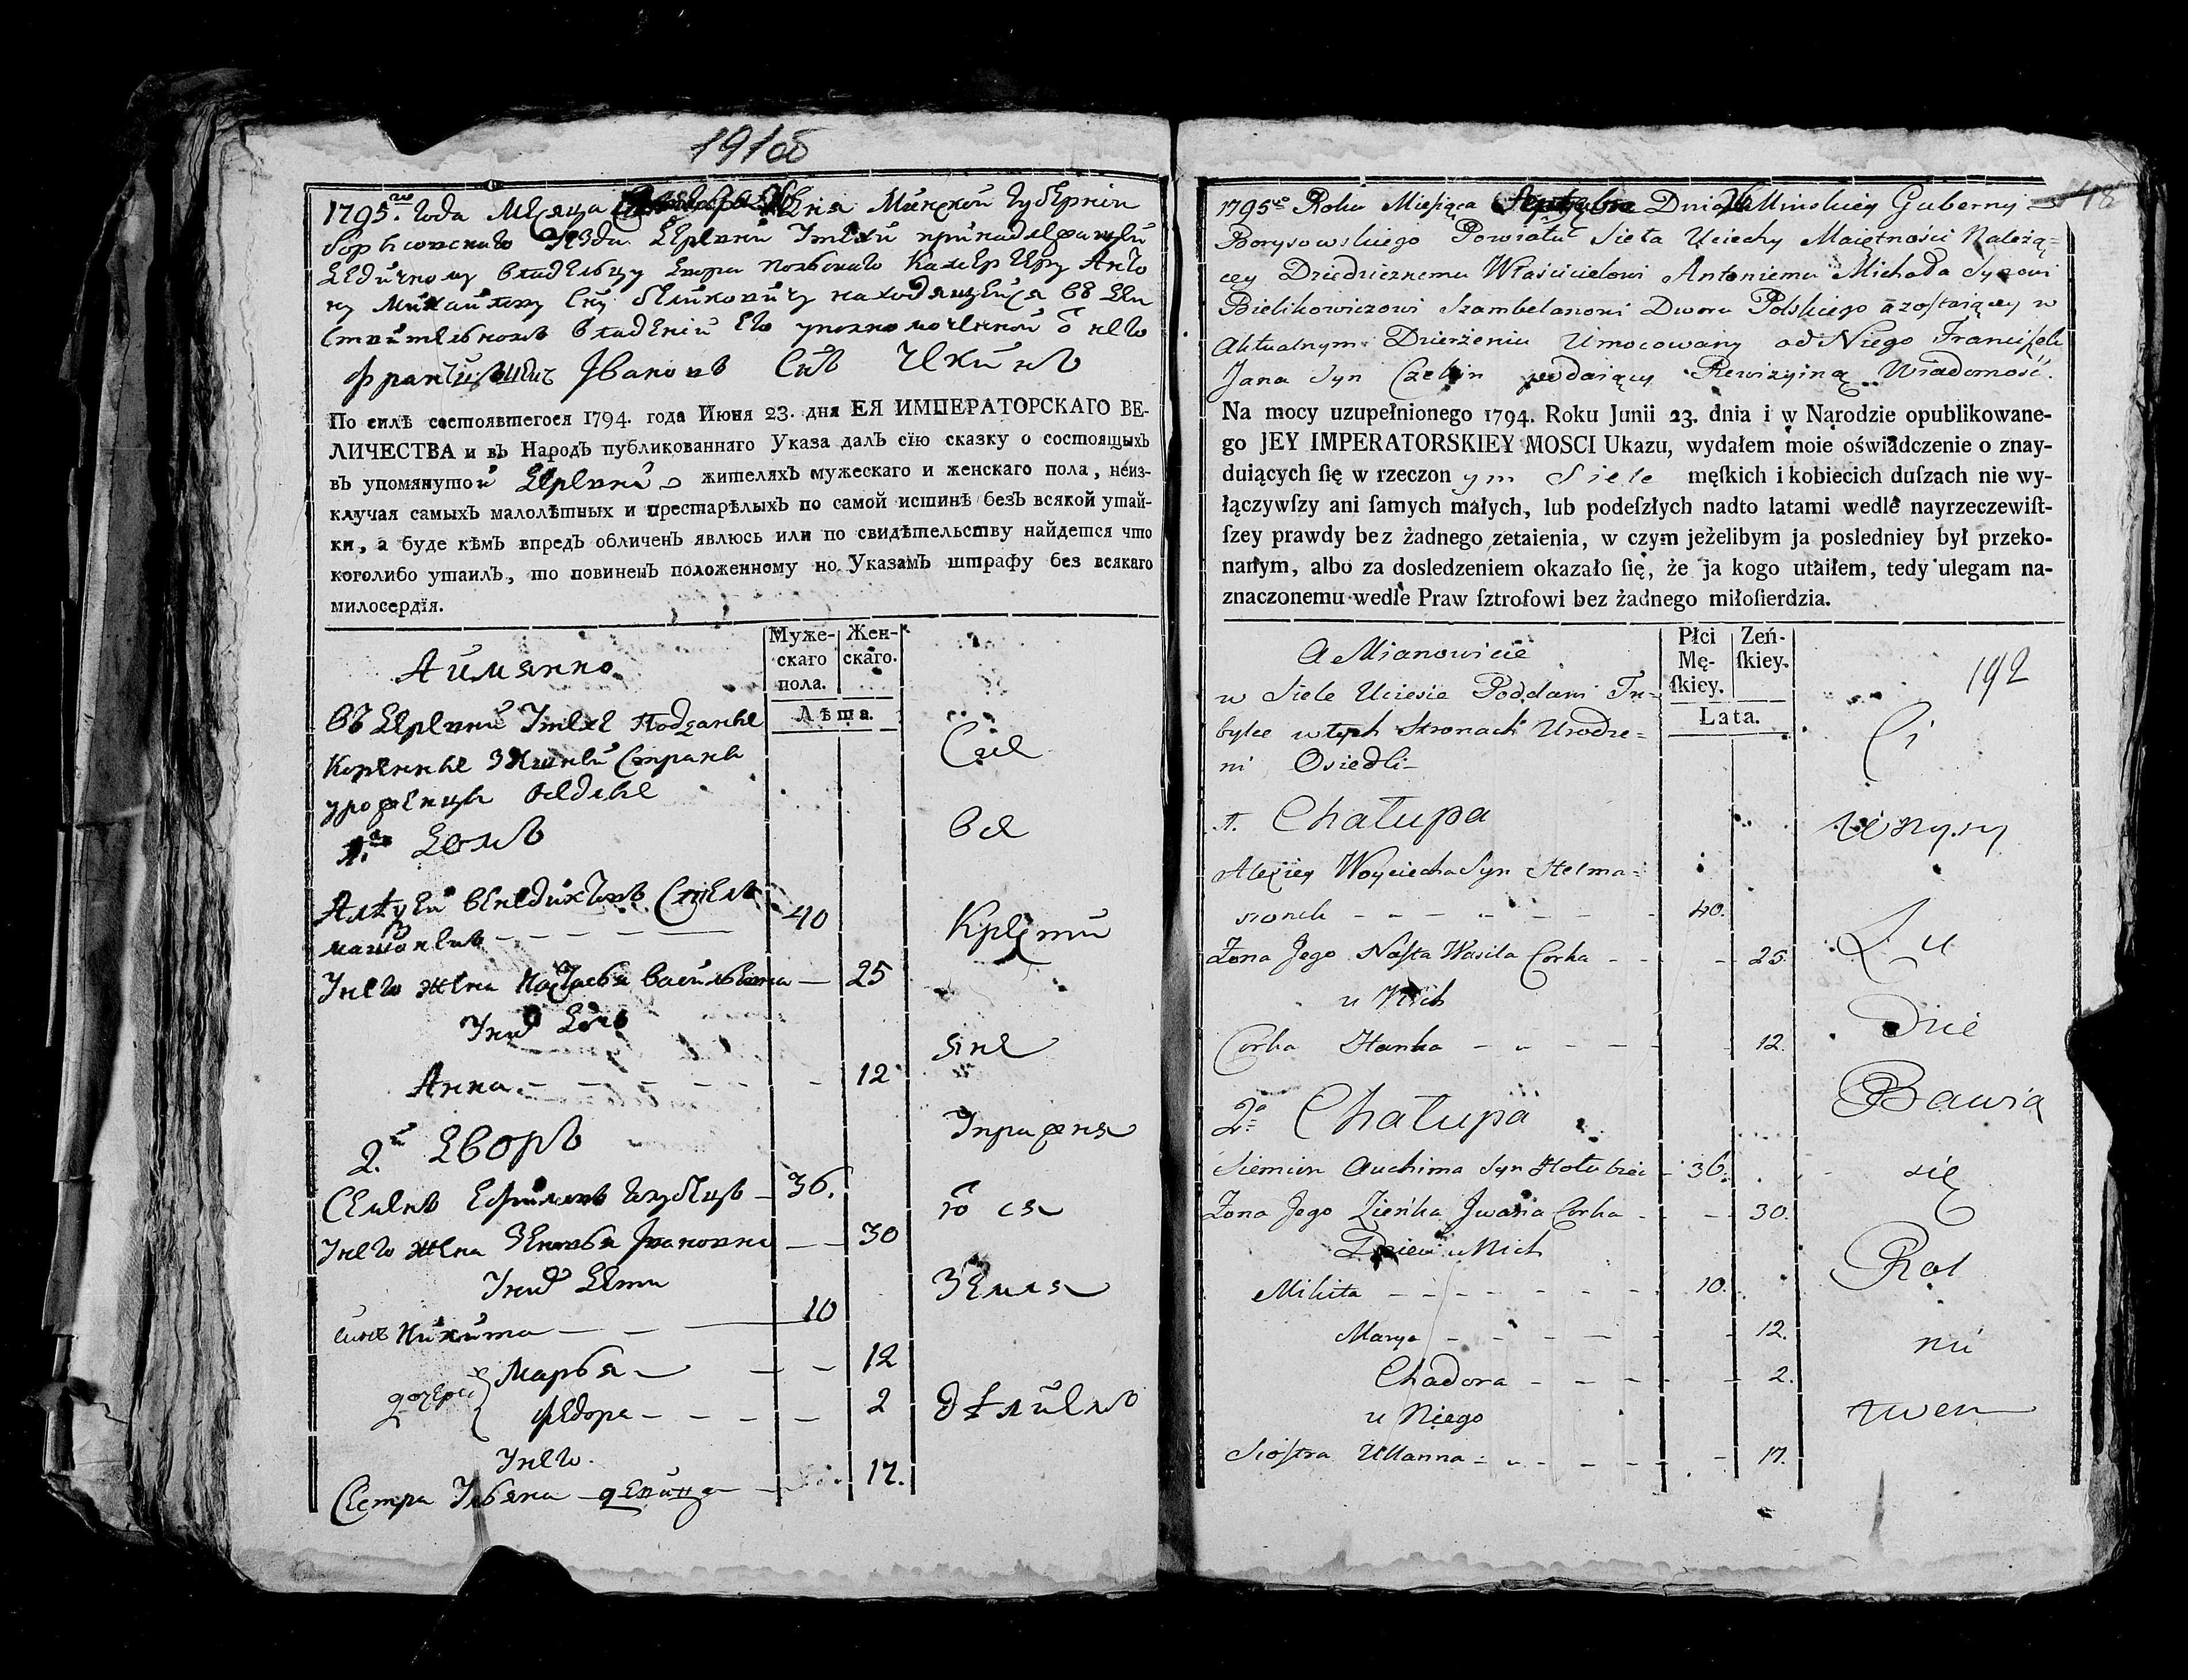 191об
1795го года Месяца дня Минской Губернiи
Борисовскаго Уезда Деревни Утехи принадлежащей
Едичному владельцу двора польскаго Камергеру Анто
ну Михайлову Сну Беликовичу находящейся въ дей
ствительномъ владенiи Его уполномоченной о него
Ивановъ Снъ Чехинъ
По силѣ состоявшегося 1794. года Июня 23. дня ЕЯ ИМПЕРАТОРСКАГО ВЕ-
ЛИЧЕСТВА и въ Народъ публикованнаго Указа далъ сїю сказку о состоящыхъ
въ упомянутой деревни жителяхъ мужескаго и женскаго пола, неиз-
ключая самыхъ малолѣтныхъ и престарѣлыхъ по самой истинѣ безъ всякой утай-
ки, а буде кѣмъ впредь обличенъ явлюсь или по свидѣтельству найдется что
коголибо утаилъ, то повиненъ положенному по Указамъ штрафу без всякаго
милосердїя.
Муже-
скаго
пола.
Жен-
скаго.
Лѣта.
Аимянно
въ деревни Утехе Подданые
Коренные Здешней Страны
уроженцы оседлые
1й Домъ
Алѣксей Венедихтовъ Стель
машонакъ — — — 40
Унего жена Настасья Васильевна — 25
Уних дочь
Анна — — — 12
2й дворъ
Семенъ Ефимовъ Голубецъ — 36.
Унего жена Зеновья Ивановна — 30
Уних дети
сынъ Никита — — 10
дочери Марья — — 12
Федора — — — 2
Унего
Сестра Ульяна девица — 17.
Сие
все
Крести
яне
Упражня
ются
Землѧ
дѣлиемъ
1795º Roku Miesiąca Septembra Dnia Minskiey Guberny
Borysowskiego Powiatu Sieła Uciechy Maiętności Należą=
cey Dziedzicznemu Właścicielowi Antoniemu Michała Synowi
Bielikowiczowi Szambelanowi Dworu Polskiego azostaiącey w
Aktualnym Dzierżeniu Umocowany od Niego Franciszek
Jana Syn Czechin podaiący Rewizyiną Wiadomość.
Na mocy uzupełnionego 1794. Roku Junii 23. dnia i w Narodzie opublikowane-
go JEY IMPERATORSKIEY MOSCI Ukazu, wydałem moie oświadczenie o znay-
duiących ſię w rzeczonym Siele męſkich i kobiecich duſzach nie wy-
łączywſzy ani ſamych małych, lub podeſzłych nadto latami wedle nayrzeczewiſt-
ſzey prawdy bez żadnego zetaienia, w czym jeżelibym ja posledniey był przeko-
nanym, albo za dosledzeniem okazało ſię, że ja kogo utaiłem, tedy ulegam na-
znaczonemu wedle Praw ſztrofowi bez żadnego miłoſierdzia.
Płci
Mę-
ſkiey.
Zeń-
ſkiey.
Lata.
192
A Mianowicie
w Siele Uciesie Poddani Tu-
bylce wtych Stronach Urodze=
ni Osiedli
1. Chałupa
Alexiey Woyciecha Syn Stelma=
szonek — — — 40.
Zona Jego Nasta Wasila Corka — 25
u Nich
Corka Hanka — — — 12.
2ª Chałupa
Siemion Auchima Syn Hołubiec — 36.
Zona Jego Zieńka Jwana Corka — 30.
Dzieci u Nich
Mikita — — — 10.
Marya — — — 12.
Chadora — — — 2.
u Niego
Siostra Ullanna — — — 17.
Ci
wszyscy
Lu
dzie
Bawią
się
Rol
ni
twem